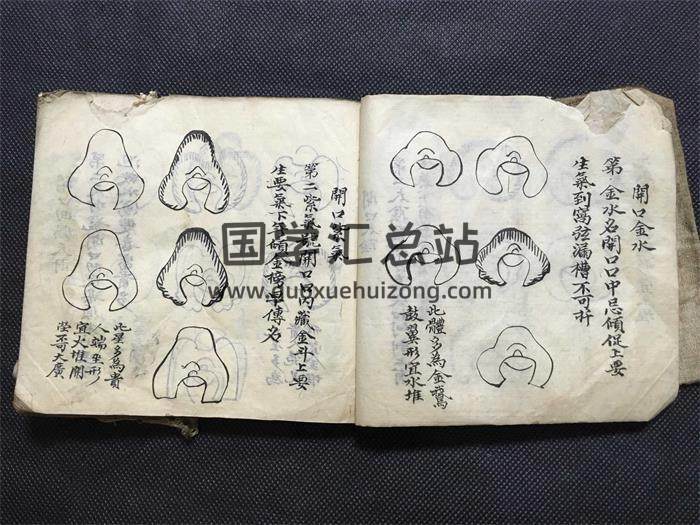 開口金水
第一金水名開口口中忌傾促上要
生氣到窩弦漏槽不可
此體多為金鵞
鼓翼形宜水堆
開口紫炁
第二紫氣 開口口內藏金斗上要
生要氣下
傳名
此星多為貴
人端坐形
宜火堆開
塋不可大廣
国学汇总站
www.guoxuehuizong.com